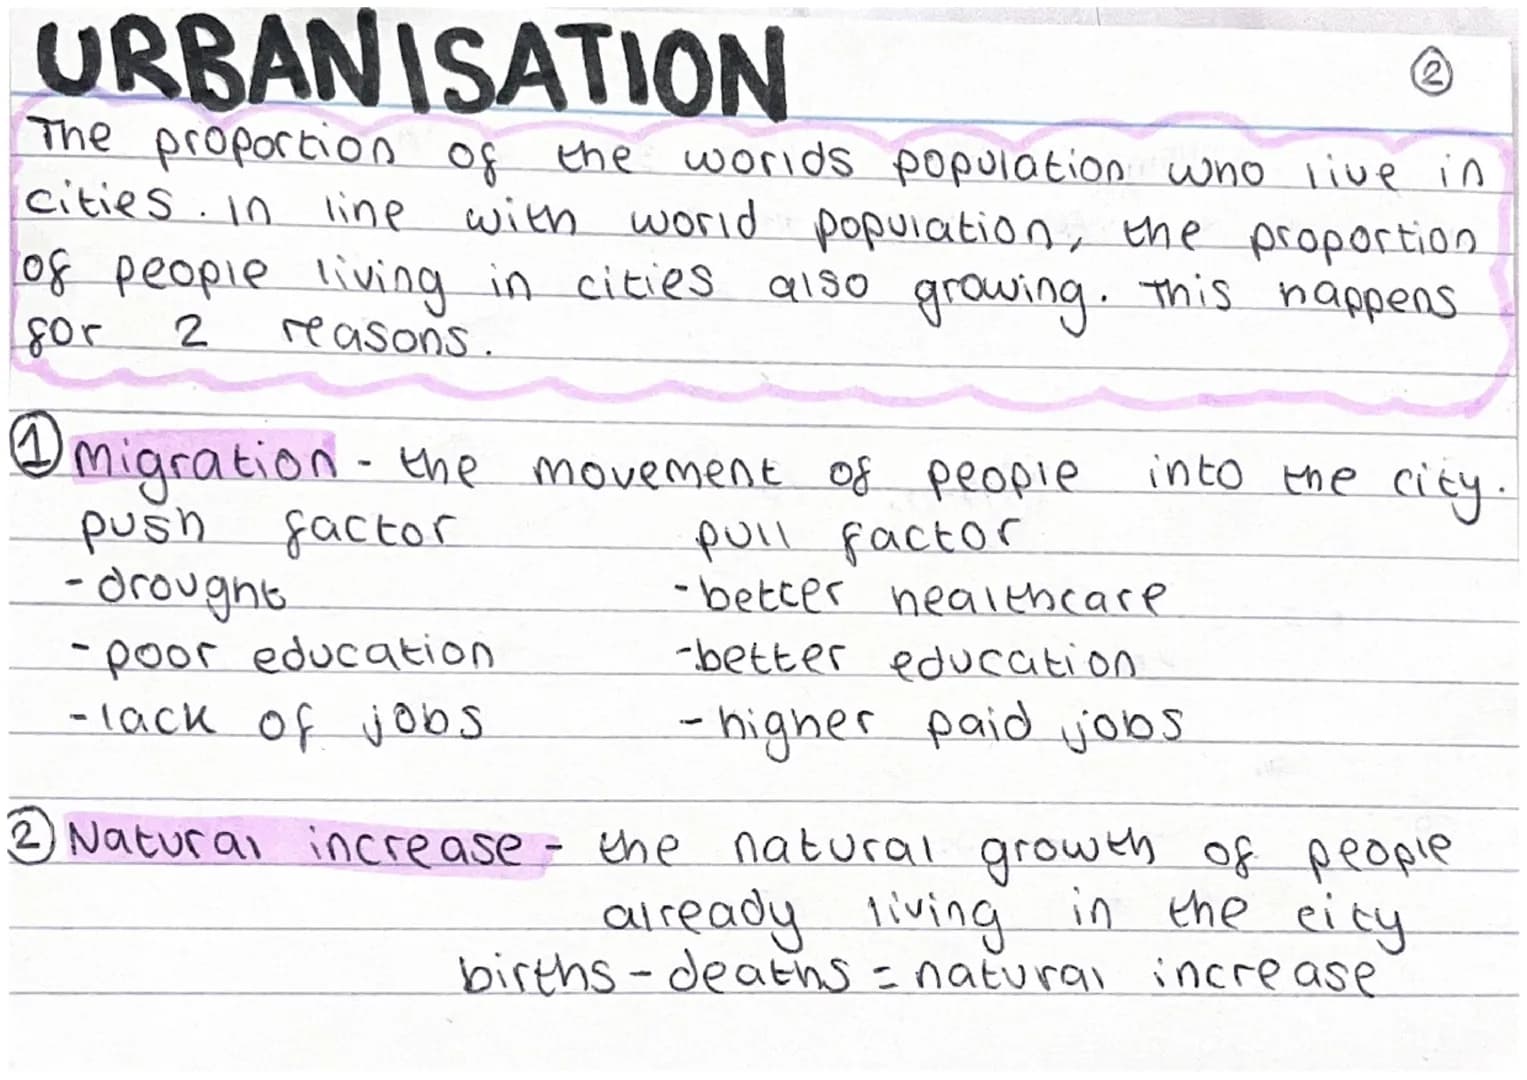 URBANISATION
②
The proportion of the worlds population who live in
cities. In line with world population, the proportion
of people living in cities also growing. This happens
for 2 reasons.
① Migration - the movement of people into the city.
push factor pull factor
- drought - better healthcare
- poor education - better education
- lack of jobs - higher paid jobs
② Natural increase - the natural growth of people
already living in the city
births - deaths = natural increase